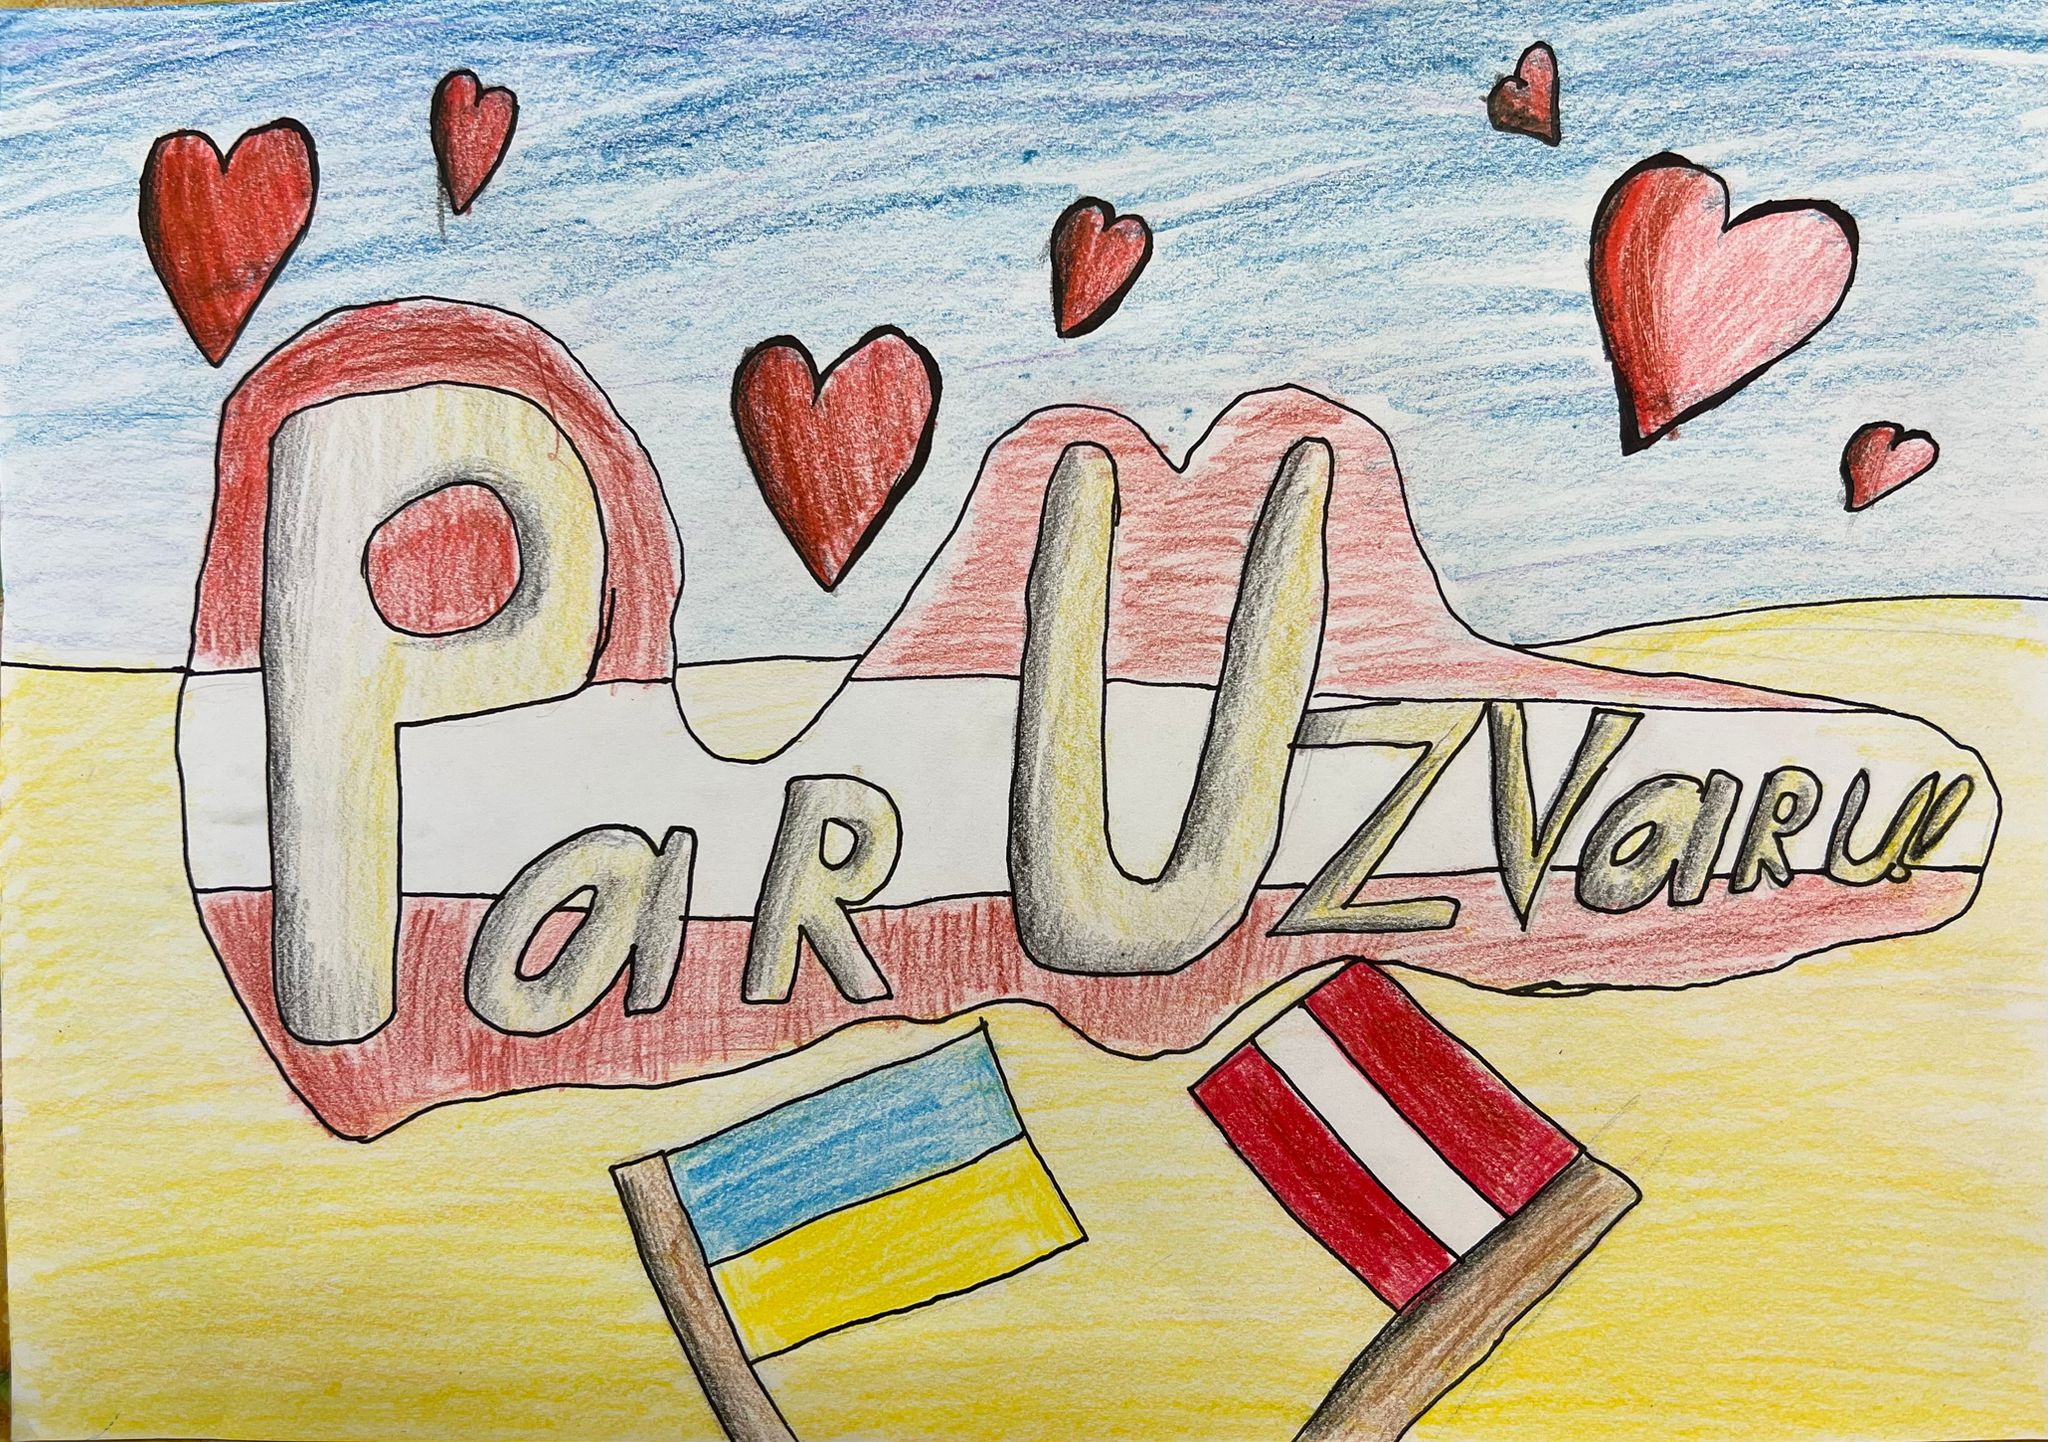 Par Uzvaru!!